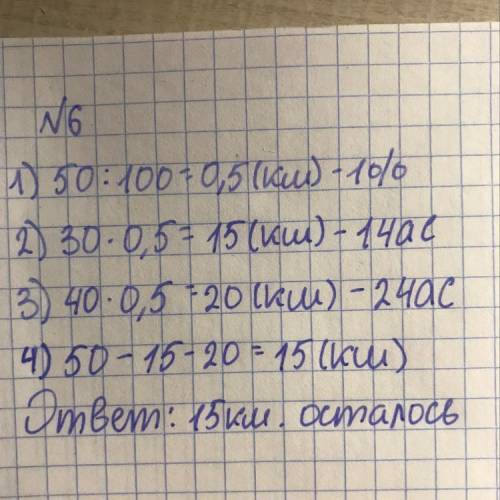 №6
1) 50:100=0,5(км)-1%
2) 30·0,5=15(км)-1час
3) 40·0,5=20(км)-2час
4) 50-15-20=15(км)
Ответ: 15км. осталось